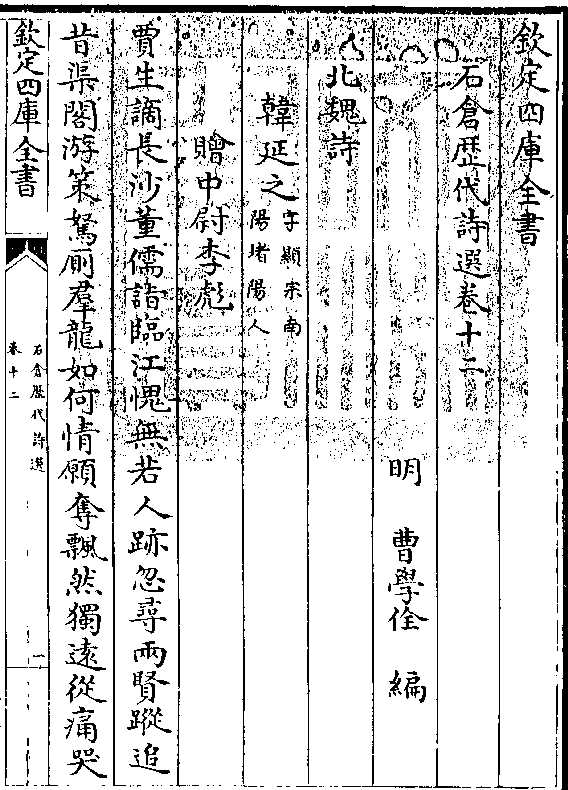 欽定四庫全書
石倉歴代詩選卷十二
明　曹學佺　編
北魏詩
韓延之字顯宗南
陽堵陽人
贈中尉李彪
賈生謫長沙董儒詣臨江愧無若人跡忽尋兩賢蹤追
昔渠閣游策駑厠羣龍如何情願奪飄然獨逺從痛哭
欽定四庫全書
石倉歴代詩選
卷十二
一